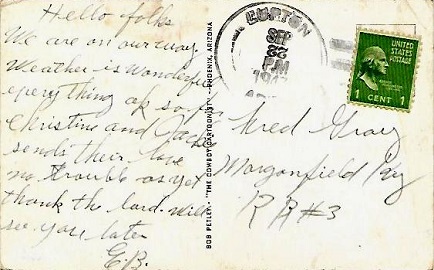 Hello folks
We are on our way
Weather is wonderful
everything ok so far
Christine and Jack
sends their love
no trouble as yet
thank the lord. will
see you later
E.B.
BOB PETLEY - "THE COMBOY CARTOONIST" - PHOENIX, ARIZONA
BURTON
SEP
22
PM
UNITED
STATES
POSTAGE
1 CENT 1
Fred Gray
Morganfield Ky
RR#3